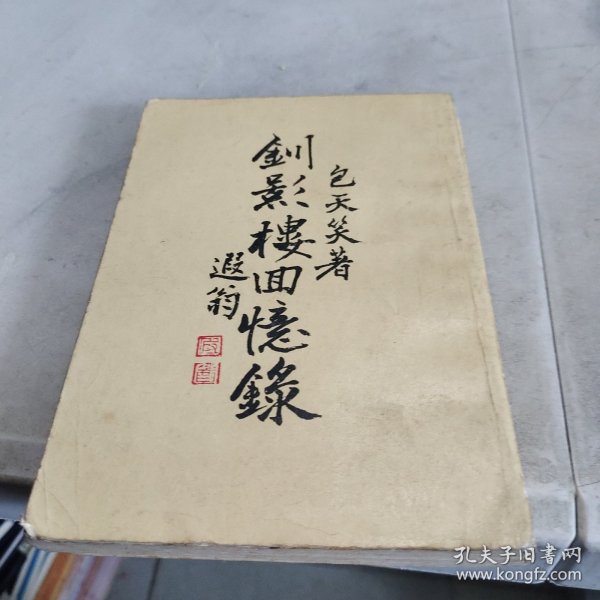 包天笑著
釧影樓回憶錄
遐翁
孔夫子旧书网
www.kongfz.com